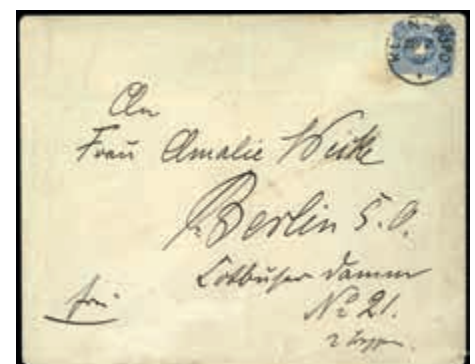 An
Frau Amalie
Berlin S. O.
Cottbuser Damm
No 21.
2 Treppen.
frei